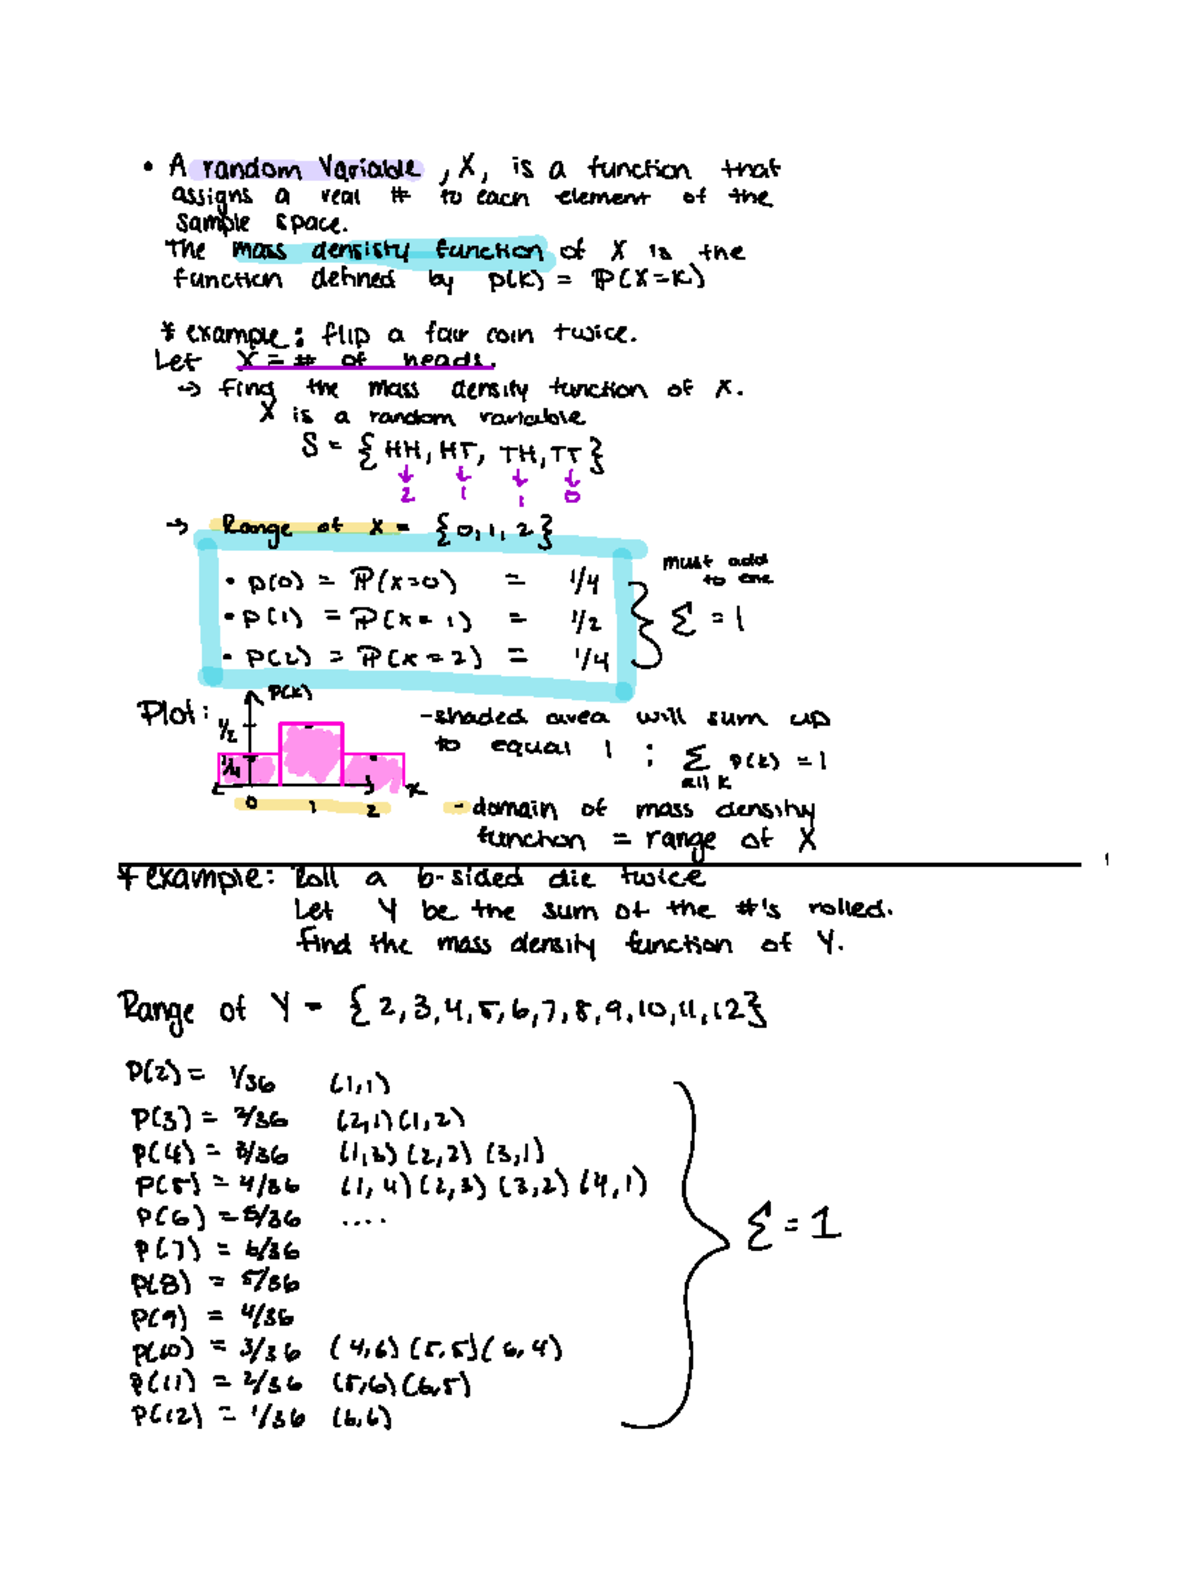 • A random Variable, X, is a function that
assigns a real # to each element of the
sample space.
The mass densisty function of X is the
function defined by p(k) = ℙ(X=K)
* example: flip a fair coin twice.
Let X = # of heads.
→ Find the mass density function of X.
X is a random variable
S = { HH, HT, TH, TT }
↓ ↓ ↓ ↓
2 1 1 0
→ Range of X = {0, 1, 2}
• p(0) = ℙ(X=0) = 1/4
• P(1) = ℙ(X=1) = 1/2
• P(2) = ℙ(X=2) = 1/4
must add
to one
Σ = 1
Plot:
P(k)
1/2
1/4
0 1 2
x
-shaded area will sum up
to equal 1 : Σ p(k) = 1
all k
-domain of mass density
function = range of X
* example: Roll a 6-sided die twice
Let Y be the sum of the #'s rolled.
Find the mass density function of Y.
Range of Y = {2,3,4,5,6,7,8,9,10,11,12}
P(2) = 1/36 (1,1)
P(3) = 2/36 (2,1) (1,2)
P(4) = 3/36 (1,3) (2,2) (3,1)
P(5) = 4/36 (1,4) (2,3) (3,2) (4,1)
P(6) = 5/36 ....
P(7) = 6/36
P(8) = 5/36
P(9) = 4/36
P(10) = 3/36 (4,6) (5,5) (6,4)
P(11) = 2/36 (5,6) (6,5)
P(12) = 1/36 (6,6)
Σ = 1